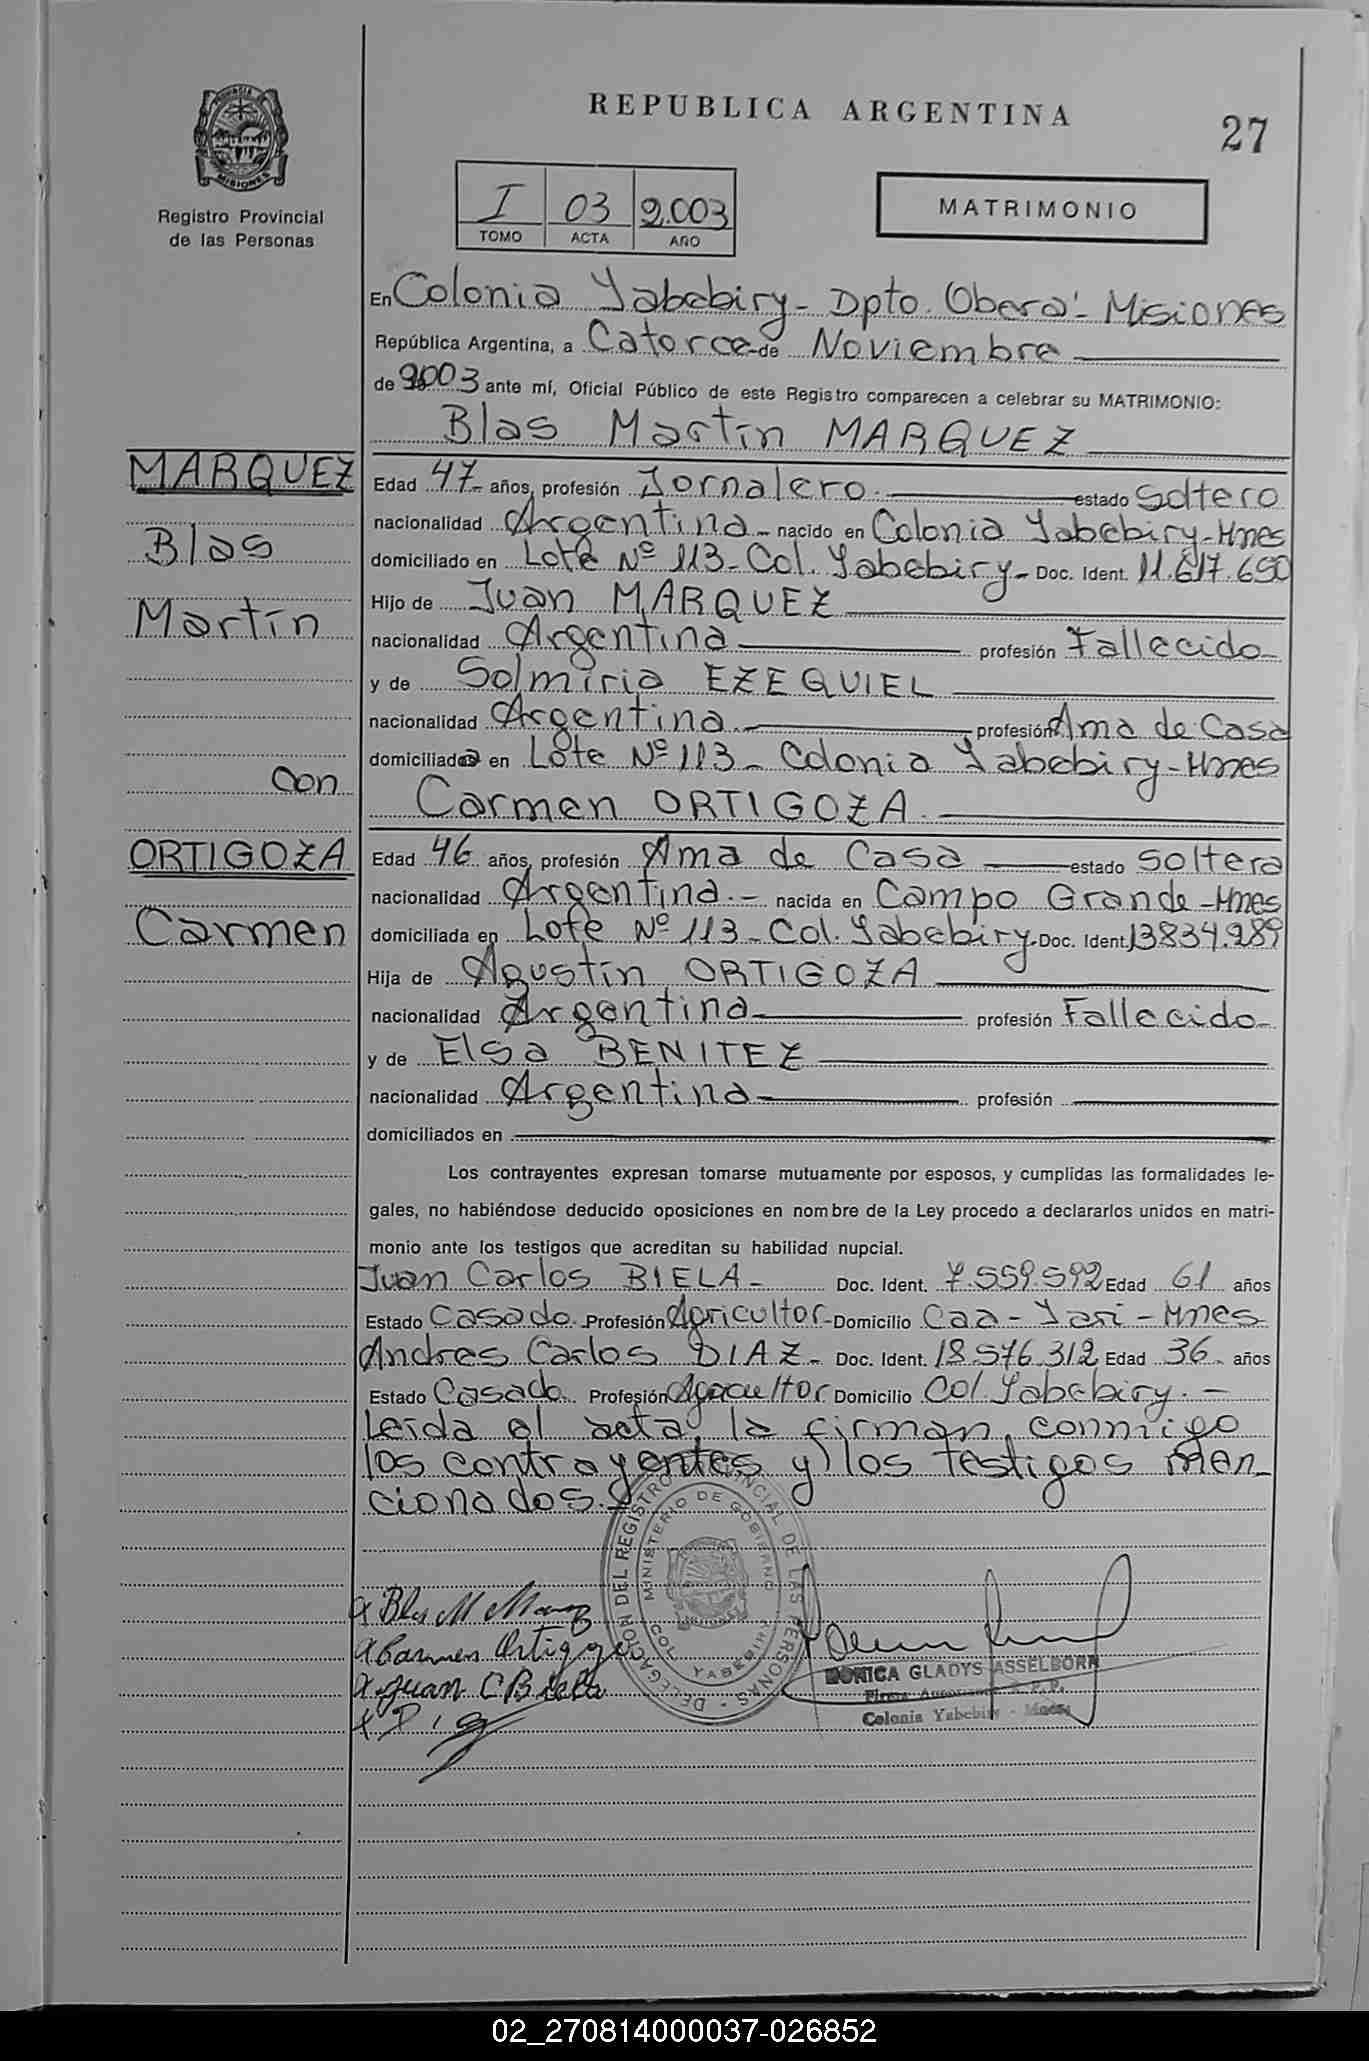 REPUBLICA ARGENTINA
27
PROVINCIA DE
MISIONES
Registro Provincial
de las Personas
I 03 2.003
TOMO ACTA AÑO
MATRIMONIO
En Colonia Yabebiry- Dpto. Oberá- Misiones
República Argentina, a Catorce- de Noviembre
de 2003 ante mí, Oficial Público de este Registro comparecen a celebrar su MATRIMONIO:
Blas Martín MARQUEZ
MARQUEZ
Blas
Martín
con
ORTIGOZA
Carmen
Edad 47- años, profesión Jornalero. estado Soltero
nacionalidad Argentina- nacido en Colonia Yabebiry-Mnes
domiciliado en Lote Nº 113- Col. Yabebiry- Doc. Ident. 11.617.650
Hijo de Juan MARQUEZ
nacionalidad Argentina profesión Fallecido-
y de Solmiria EZEQUIEL
nacionalidad Argentina. profesión Ama de Casa
domiciliada en Lote Nº 113- Colonia Yabebiry-Mnes
Carmen ORTIGOZA.
Edad 46 años, profesión Ama de Casa estado Soltera
nacionalidad Argentina.- nacida en Campo Grande-Mnes
domiciliada en Lote Nº 113- Col. Yabebiry- Doc. Ident. 13834.289
Hija de Agustín ORTIGOZA
nacionalidad Argentina profesión Fallecido-
y de Elsa BENITEZ
nacionalidad Argentina profesión
domiciliados en
Los contrayentes expresan tomarse mutuamente por esposos, y cumplidas las formalidades le-
gales, no habiéndose deducido oposiciones en nombre de la Ley procedo a declararlos unidos en matri-
monio ante los testigos que acreditan su habilidad nupcial.
Juan Carlos BIELA- Doc. Ident. 7.559.592 Edad 61 años
Estado Casado. Profesión Agricultor- Domicilio Caa-Yari-Mnes
Andres Carlos DIAZ- Doc. Ident. 18.576.312 Edad 36- años
Estado Casado. Profesión Agricultor Domicilio Col. Yabebiry.-
Leida el acta, la firman conmigo
los contrayentes y los testigos men-
cionados.
DELEGACION DEL REGISTRO PROVINCIAL DE LAS PERSONAS
MINISTERIO DE GOBIERNO
COL. YABEBIRY
x Blas M Marquez
x Carmen Ortigoza
x Juan C Biela
x
MONICA GLADYS ASSELBORN
Firma R. P. P.
Colonia Yabebiry - Mnes.
02_270814000037-026852